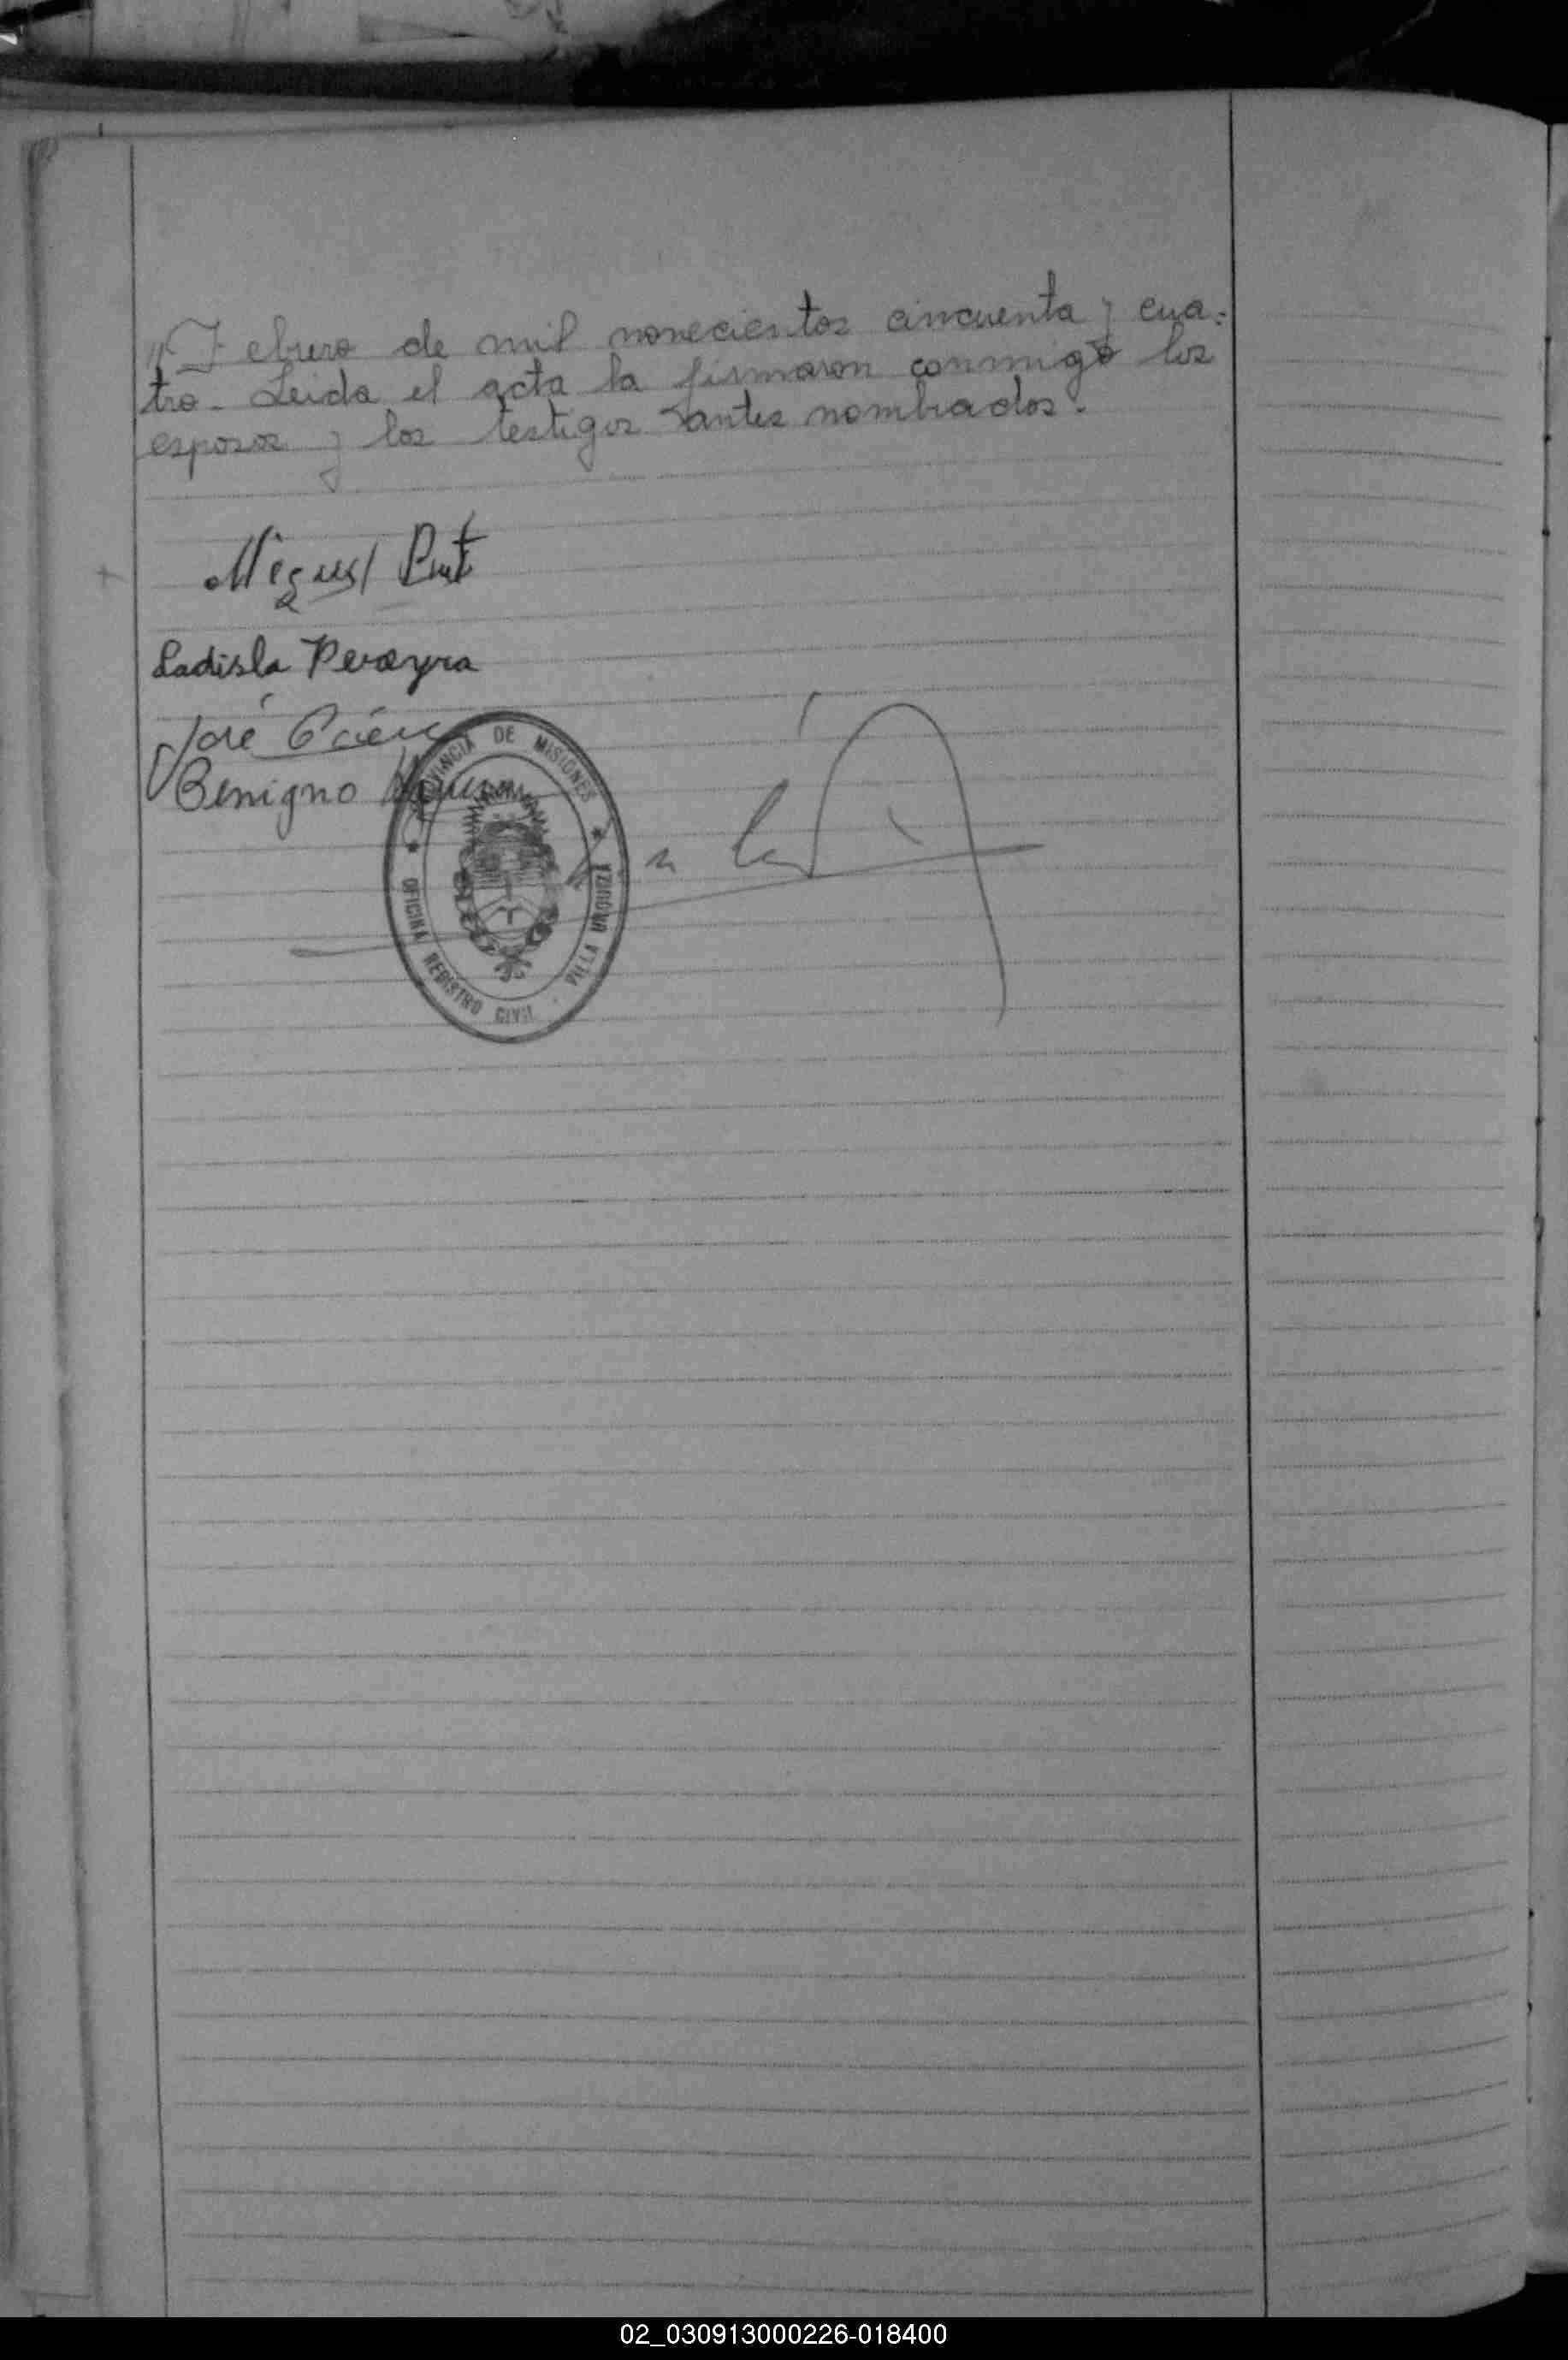 // Febrero de mil novecientos cincuenta y cua-
tro. Leida el acta la firmaron conmigo los
esposos y los testigos antes nombrados.
Miguel
Ladisla Pereyra
José
Benigno
PROVINCIA DE MISIONES
OFICINA REGISTRO CIVIL - VILLA URQUIZA
02_030913000226-018400